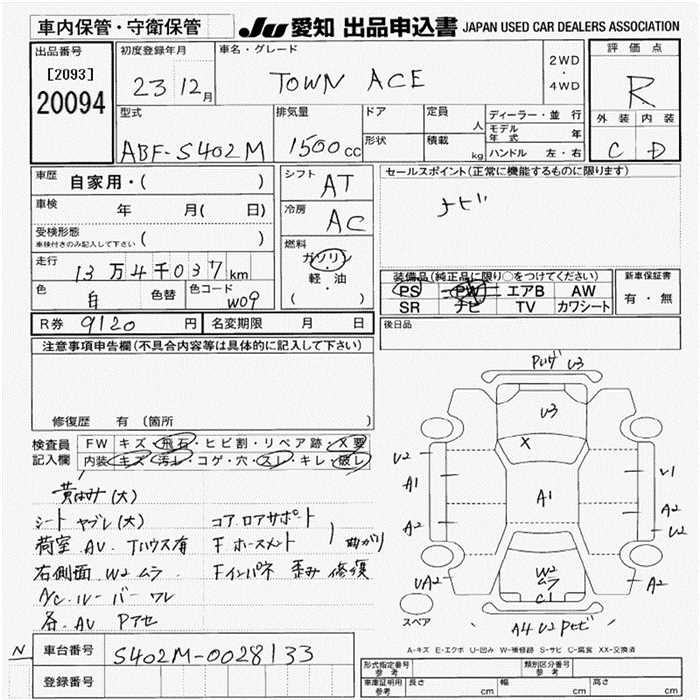 車内保管・守衛保管
JU 愛知 出品申込書 JAPAN USED CAR DEALERS ASSOCIATION
出品番号
[2093]
20094
初度登録年月
23 12月
車名・グレード
TOWN ACE
2WD
・
4WD
評価点
R
外装 内装
C D
型式
ABF-S402M
排気量
1500cc
ドア
形状
定員
人
積載
kg
ディーラー・並行
モデル年式 年
ハンドル 左・右
車歴 自家用・( )
車検 年 月( 日)
受検形態
車検付きのみ記入して下さい ( )
走行 13万4千037km
色 白 色替 色コード W09
シフト AT
冷房 AC
燃料
ガソリン
・
軽・油
( )
セールスポイント(正常に機能するものに限ります)
ナビ
装備品(純正品に限り○をつけてください)
PS PW エアB AW
SR ナビ TV カワシート
新車保証書
有・無
R券 9120 円 名変期限 月 日
後日品
注意事項申告欄(不具合内容等は具体的に記入して下さい)
修復歴 有 (箇所 )
検査員記入欄
FW キズ・飛石・ヒビ割・リペア跡・X要
内装 キズ・汚レ・コゲ・穴・スレ・キレ・破レ
黄ばみ(大)
シート ヤブレ(大) コアロアサポート
荷室 AU. Tハウス有 Fホースメント 曲がり
右側面 W2 ムラ. Fインパネ 歪み 修復
A/C.ルーバー ワレ
各. AU Pアセ
N 車台番号 S402M-0028133
登録番号
U3
U3
X
U2
A1
A2
UA2
A1
V1
A2
U2
W2
ムラ
C1
A2
スペア
A4 U2 Pセビ
A-キズ E-エクボ U-凹み W-補修跡 S-サビ C-腐食 XX-交換済
形式指定番号
参考
類別区分番号
参考
車庫証明用
参考
長さ cm 幅 cm 高さ cm